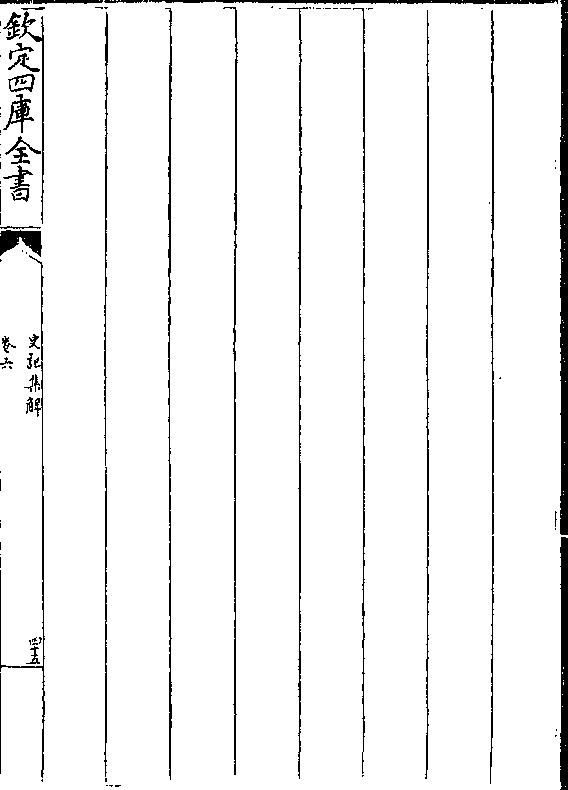 欽定四庫全書
史記集解
卷六
四十五